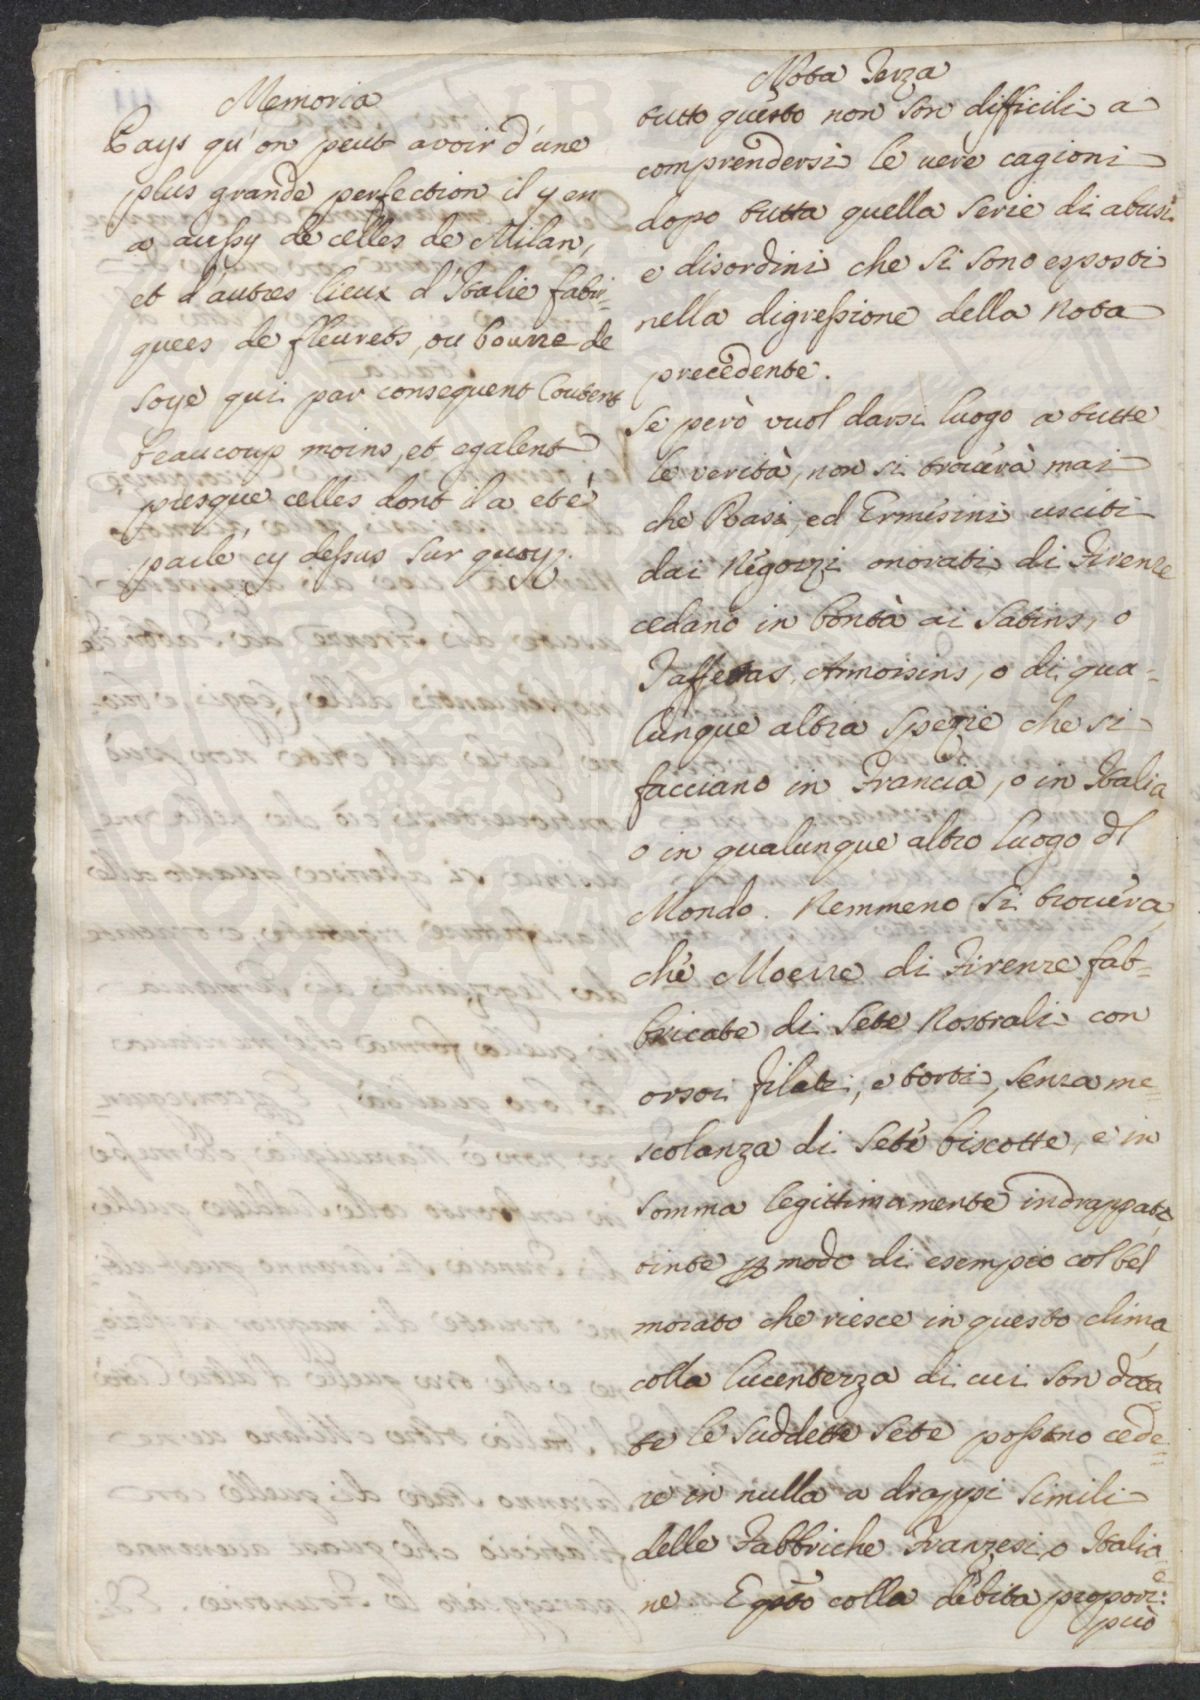 Memoria
Pays qu'on peut avoir d'une
plus grande perfection il y en
a aussy de celles de Milan,
et d'autres lieux d'Italie fabri=
quees de fleurets, ou bourre de
soye qui par consequent Coutent
beaucoup moins, et egalent
presque celles dont il a eté
parlé cy dessus sur quoy.
Nota Terza
tutto questo non son difficili a
comprendersi le vere cagioni
dopo tutta quella serie di abusi
e disordini che si sono esposti
nella digressione della Nota
precedente.
Se però vuol darsi luogo a tutte
le verità, non si troverà mai
che Rasi, ed Ermisini usciti
dai Negozzi onorati di Firenze
cedano in bontà ai Satins, o
Taffettas, Armoisins, o di qua=
lunque altra spezie che si
facciano in Francia, o in Italia
o in qualunque altro luogo dl
Mondo. Nemmeno si troverà,
che Moerre di Firenze fab=
bricate di Sete Nostrali con
orsoi filati, e torti, senza me=
scolanza di Sete biscotte, e in
somma legittimamente indrappate,
tinte p modo di esempio col bel
morato che riesce in questo clima,
colla lucentezza di cui son data
te le suddette Sete possano cede=
re in nulla a drappi simili
delle Fabbriche Franzesi, o Italia=
ne E qsto colla debita propor:e
può